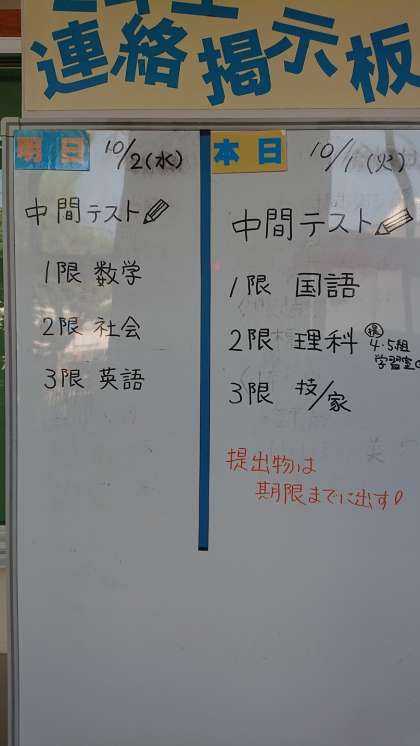 連絡掲示板
明日 10/2(水)
中間テスト
1限 数学
2限 社会
3限 英語
本日 10/1(火)
中間テスト
1限 国語
2限 理科
4・5組
学習室
3限 技/家
提出物は
期限までに出す!